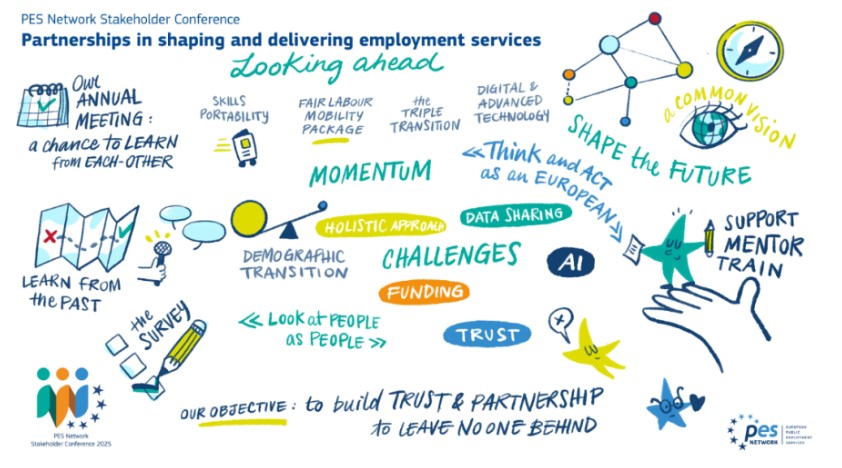 PES Network Stakeholder Conference
Partnerships in shaping and delivering employment services
Looking ahead
OUR
ANNUAL
MEETING:
a chance to LEARN
from EACH-OTHER
SKILLS
PORTABILITY
FAIR LABOUR
MOBILITY
PACKAGE
the
TRIPLE
TRANSITION
DIGITAL &
ADVANCED
TECHNOLOGY
a COMMON VISION
SHAPE the FUTURE
MOMENTUM
<< Think and ACT
as an EUROPEAN >>
HOLISTIC APPROACH
DATA SHARING
SUPPORT
MENTOR
TRAIN
DEMOGRAPHIC
TRANSITION
CHALLENGES
AI
LEARN FROM
the PAST
FUNDING
the
SURVEY
<< LOOK at PEOPLE
as PEOPLE >>
TRUST
OUR OBJECTIVE: to build TRUST & PARTNERSHIP
to LEAVE NO ONE BEHIND
PES Network
Stakeholder Conference 2025
pes
NETWORK
EUROPEAN
PUBLIC
EMPLOYMENT
SERVICES